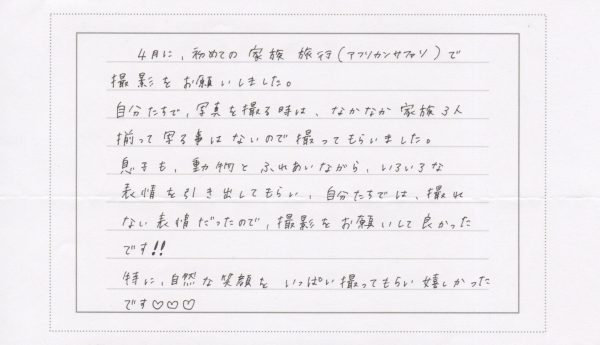 4月に、初めての家族旅行(アフリカンサファリ)で
撮影をお願いしました。
自分たちで、写真を撮る時は、なかなか家族3人
揃って写る事はないので撮ってもらいました。
息子も、動物とふれあいながら、いろいろな
表情を引き出してもらい、自分たちでは、撮れ
ない表情だったので、撮影をお願いして良かった
です!!
特に、自然な笑顔をいっぱい撮ってもらい嬉しかった
です♡♡♡